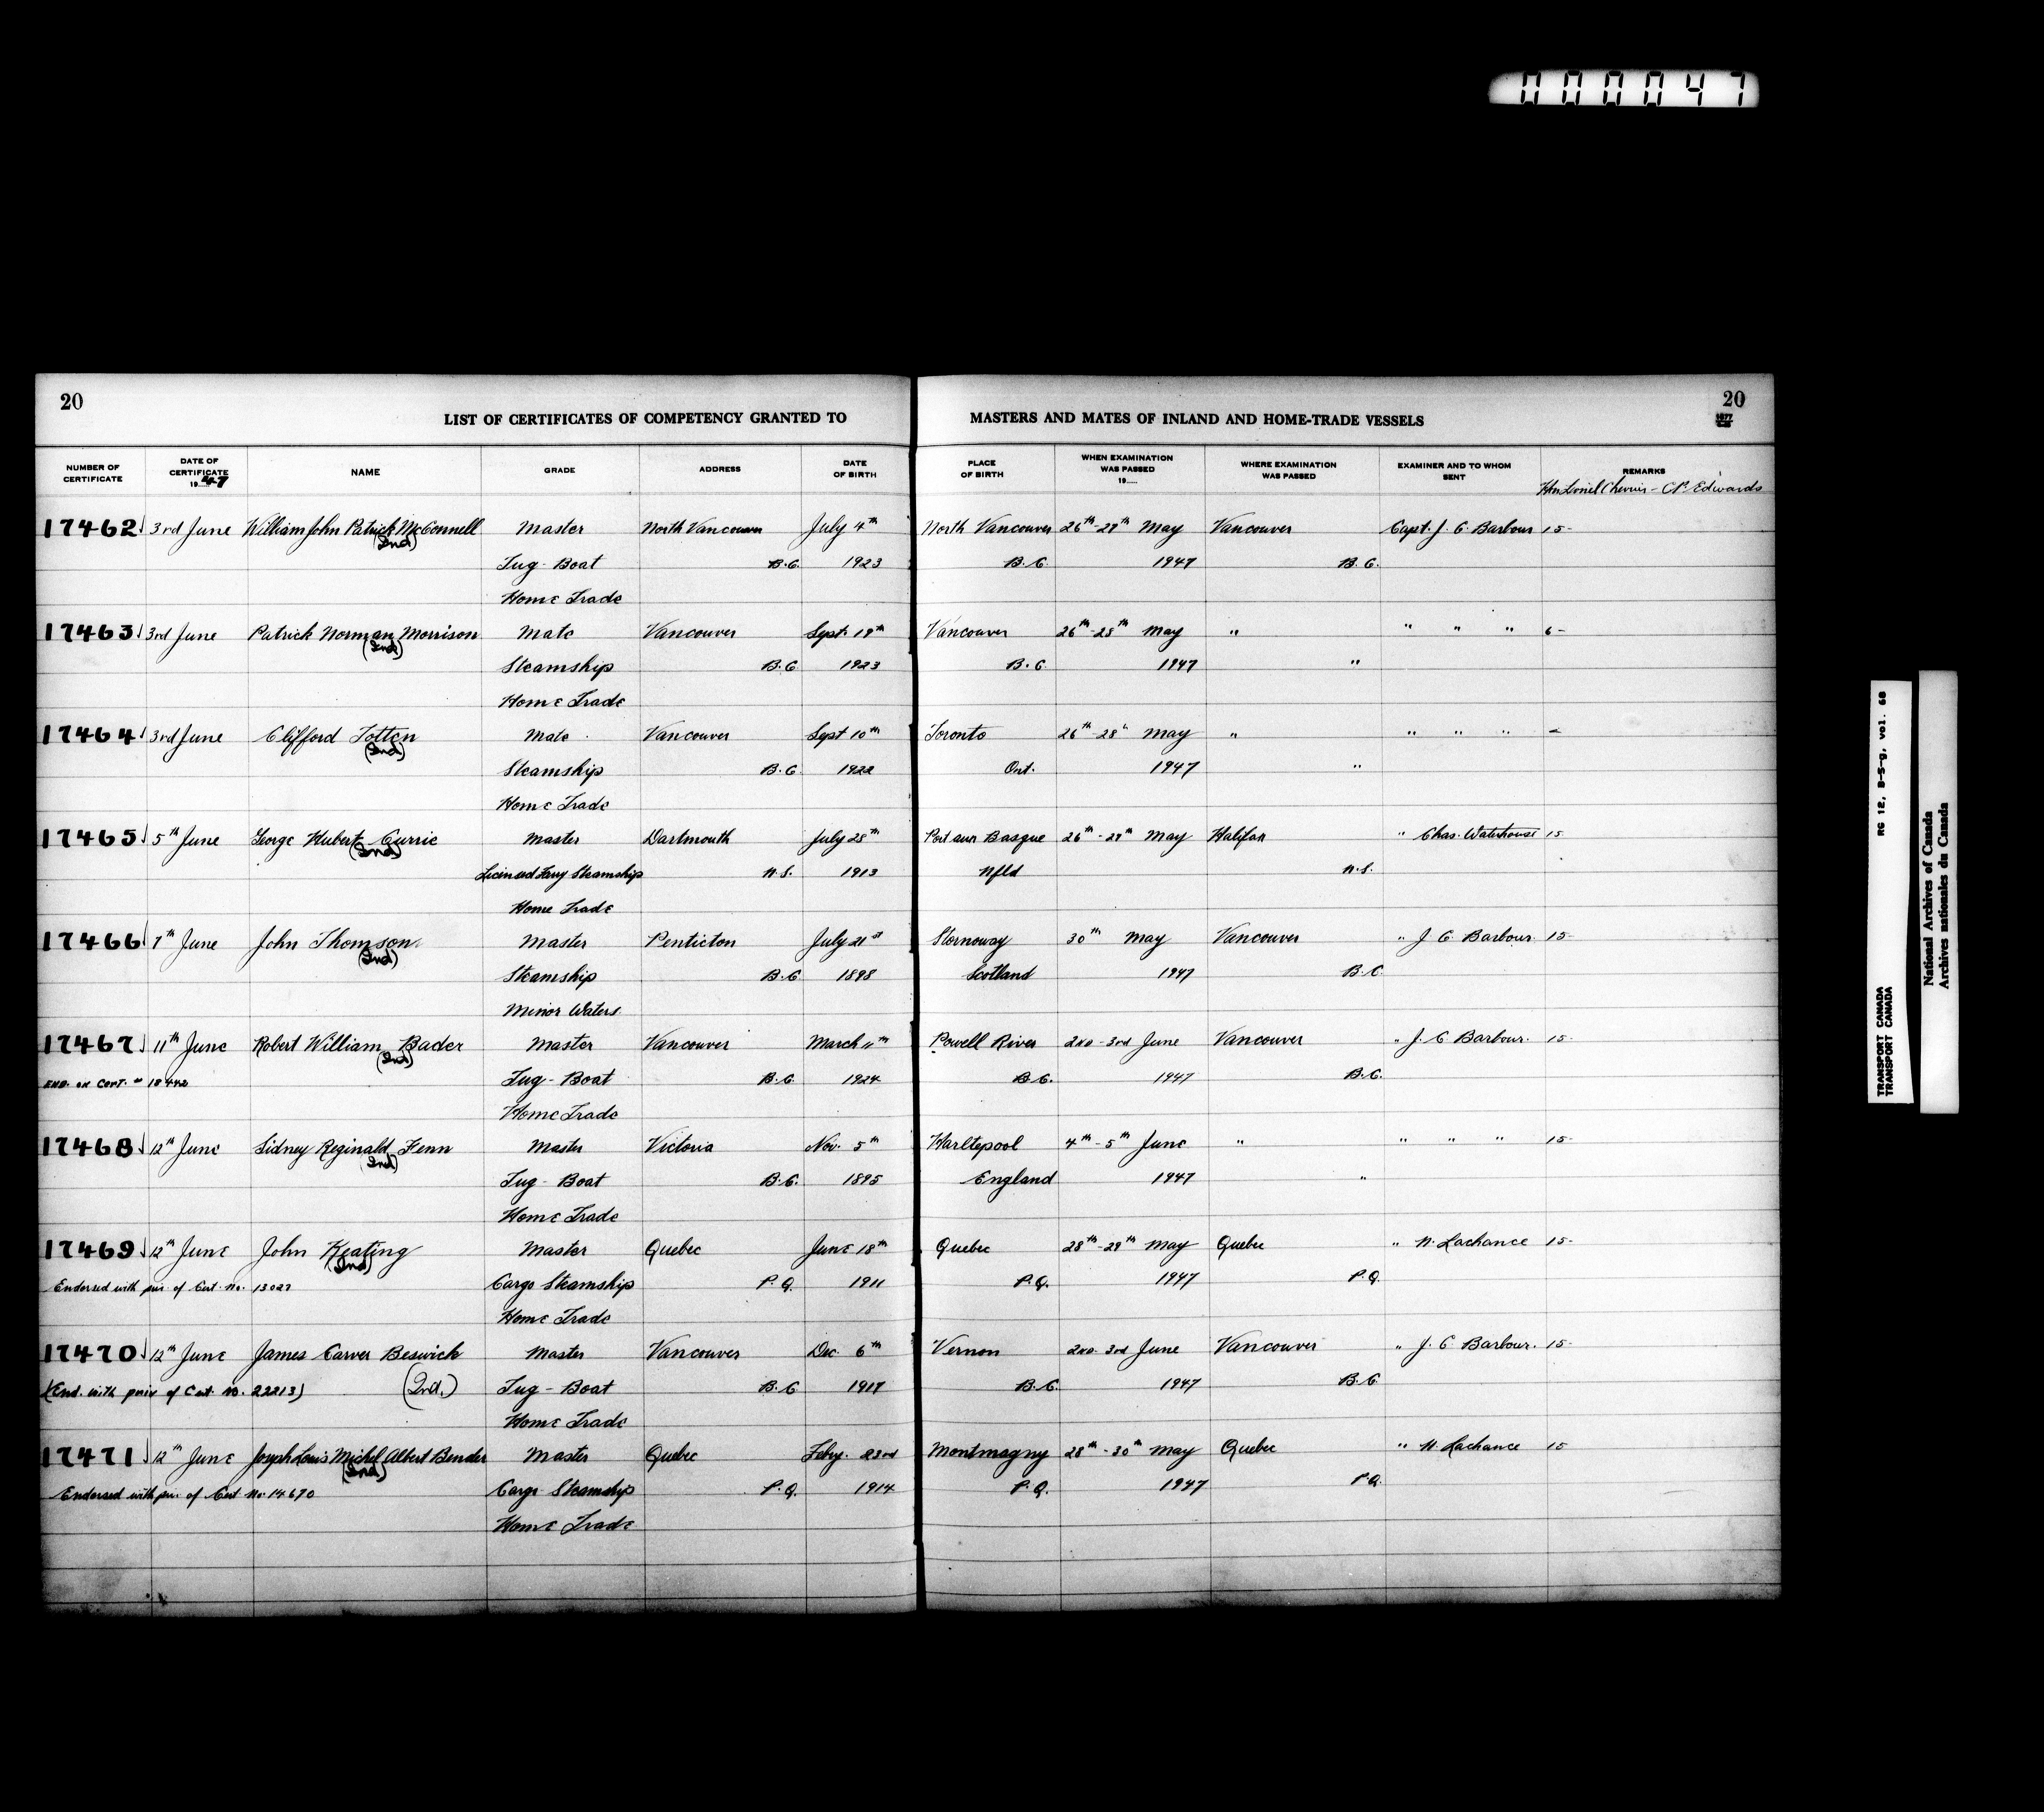 000047
20
LIST OF CERTIFICATES OF COMPETENCY GRANTED TO
MASTERS AND MATES OF INLAND AND HOME-TRADE VESSELS
20
NUMBER OF CERTIFICATE
DATE OF CERTIFICATE 1947
NAME
GRADE
ADDRESS
DATE OF BIRTH
PLACE OF BIRTH
WHEN EXAMINATION WAS PASSED 19.....
WHERE EXAMINATION WAS PASSED
EXAMINER AND TO WHOM SENT
REMARKS
Hon Lionel Chevrier - C.P. Edwards
17462 3rd June William John Patrick McConnell Master North Vancouver July 4th North Vancouver 26th-29th May Vancouver Capt. J. C. Barbour 15-
(Ind) Tug-Boat B.C. 1923 B.C. 1947 B.C.
Home Trade
17463 3rd June Patrick Norman Morrison Mate Vancouver Sept. 19th Vancouver 26th-28th May " " " " 6-
(Ind) Steamship B.C. 1923 B.C. 1947 "
Home Trade
17464 3rd June Clifford Totten Mate Vancouver Sept 10th Toronto 26th-28th May " " " "
(Ind) Steamship B.C. 1922 Ont. 1947 "
Home Trade
17465 5th June George Hubert Currie Master Dartmouth July 25th Port aux Basque 26th-29th May Halifax " Chas. Waterhouse 15
(Ind) Licensed Ferry Steamship N.S. 1913 Nfld N.S.
Home Trade
17466 7th June John Thomson Master Penticton July 21st Stornoway 30th May Vancouver " J. C. Barbour 15-
(Ind) Steamship B.C. 1898 Scotland 1947 B.C.
Minor Waters
17467 11th June Robert William Bader Master Vancouver March 11th Powell River 2nd-3rd June Vancouver " J. C. Barbour. 15-
END. ON CERT. # 18442 (Ind) Tug-Boat B.C. 1924 B.C. 1947 B.C.
Home Trade
17468 12th June Sidney Reginald Fenn Master Victoria Nov. 5th Hartlepool 4th-5th June " " " " 15-
(Ind) Tug-Boat B.C. 1895 England 1947 "
Home Trade
17469 12th June John Keating Master Quebec June 18th Quebec 28th-29th May Quebec " N. Lachance 15-
(Ind)
Endorsed with priv. of Cert. No. 13027 Cargo Steamship P.Q. 1911 P.Q. 1947 P.Q.
Home Trade
17470 12th June James Carver Beswick Master Vancouver Dec. 6th Vernon 2nd-3rd June Vancouver " J. C. Barbour. 15-
(End. with priv of Cert. No. 22213) (Ind.) Tug-Boat B.C. 1917 B.C. 1947 B.C.
Home Trade
17471 12th June Joseph Louis Michel Albert Bender Master Quebec Feby. 23rd Montmagny 28th-30th May Quebec " N. Lachance 15
(Ind)
Endorsed with priv. of Cert No. 14670 Cargo Steamship P.Q. 1914 P.Q. 1947 P.Q.
Home Trade
RG 12, B-5-g, vol. 68
TRANSPORT CANADA
TRANSPORT CANADA
National Archives of Canada
Archives nationales du Canada